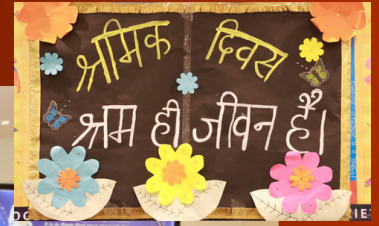 श्रमिक दिवस
श्रम ही जीवन है।